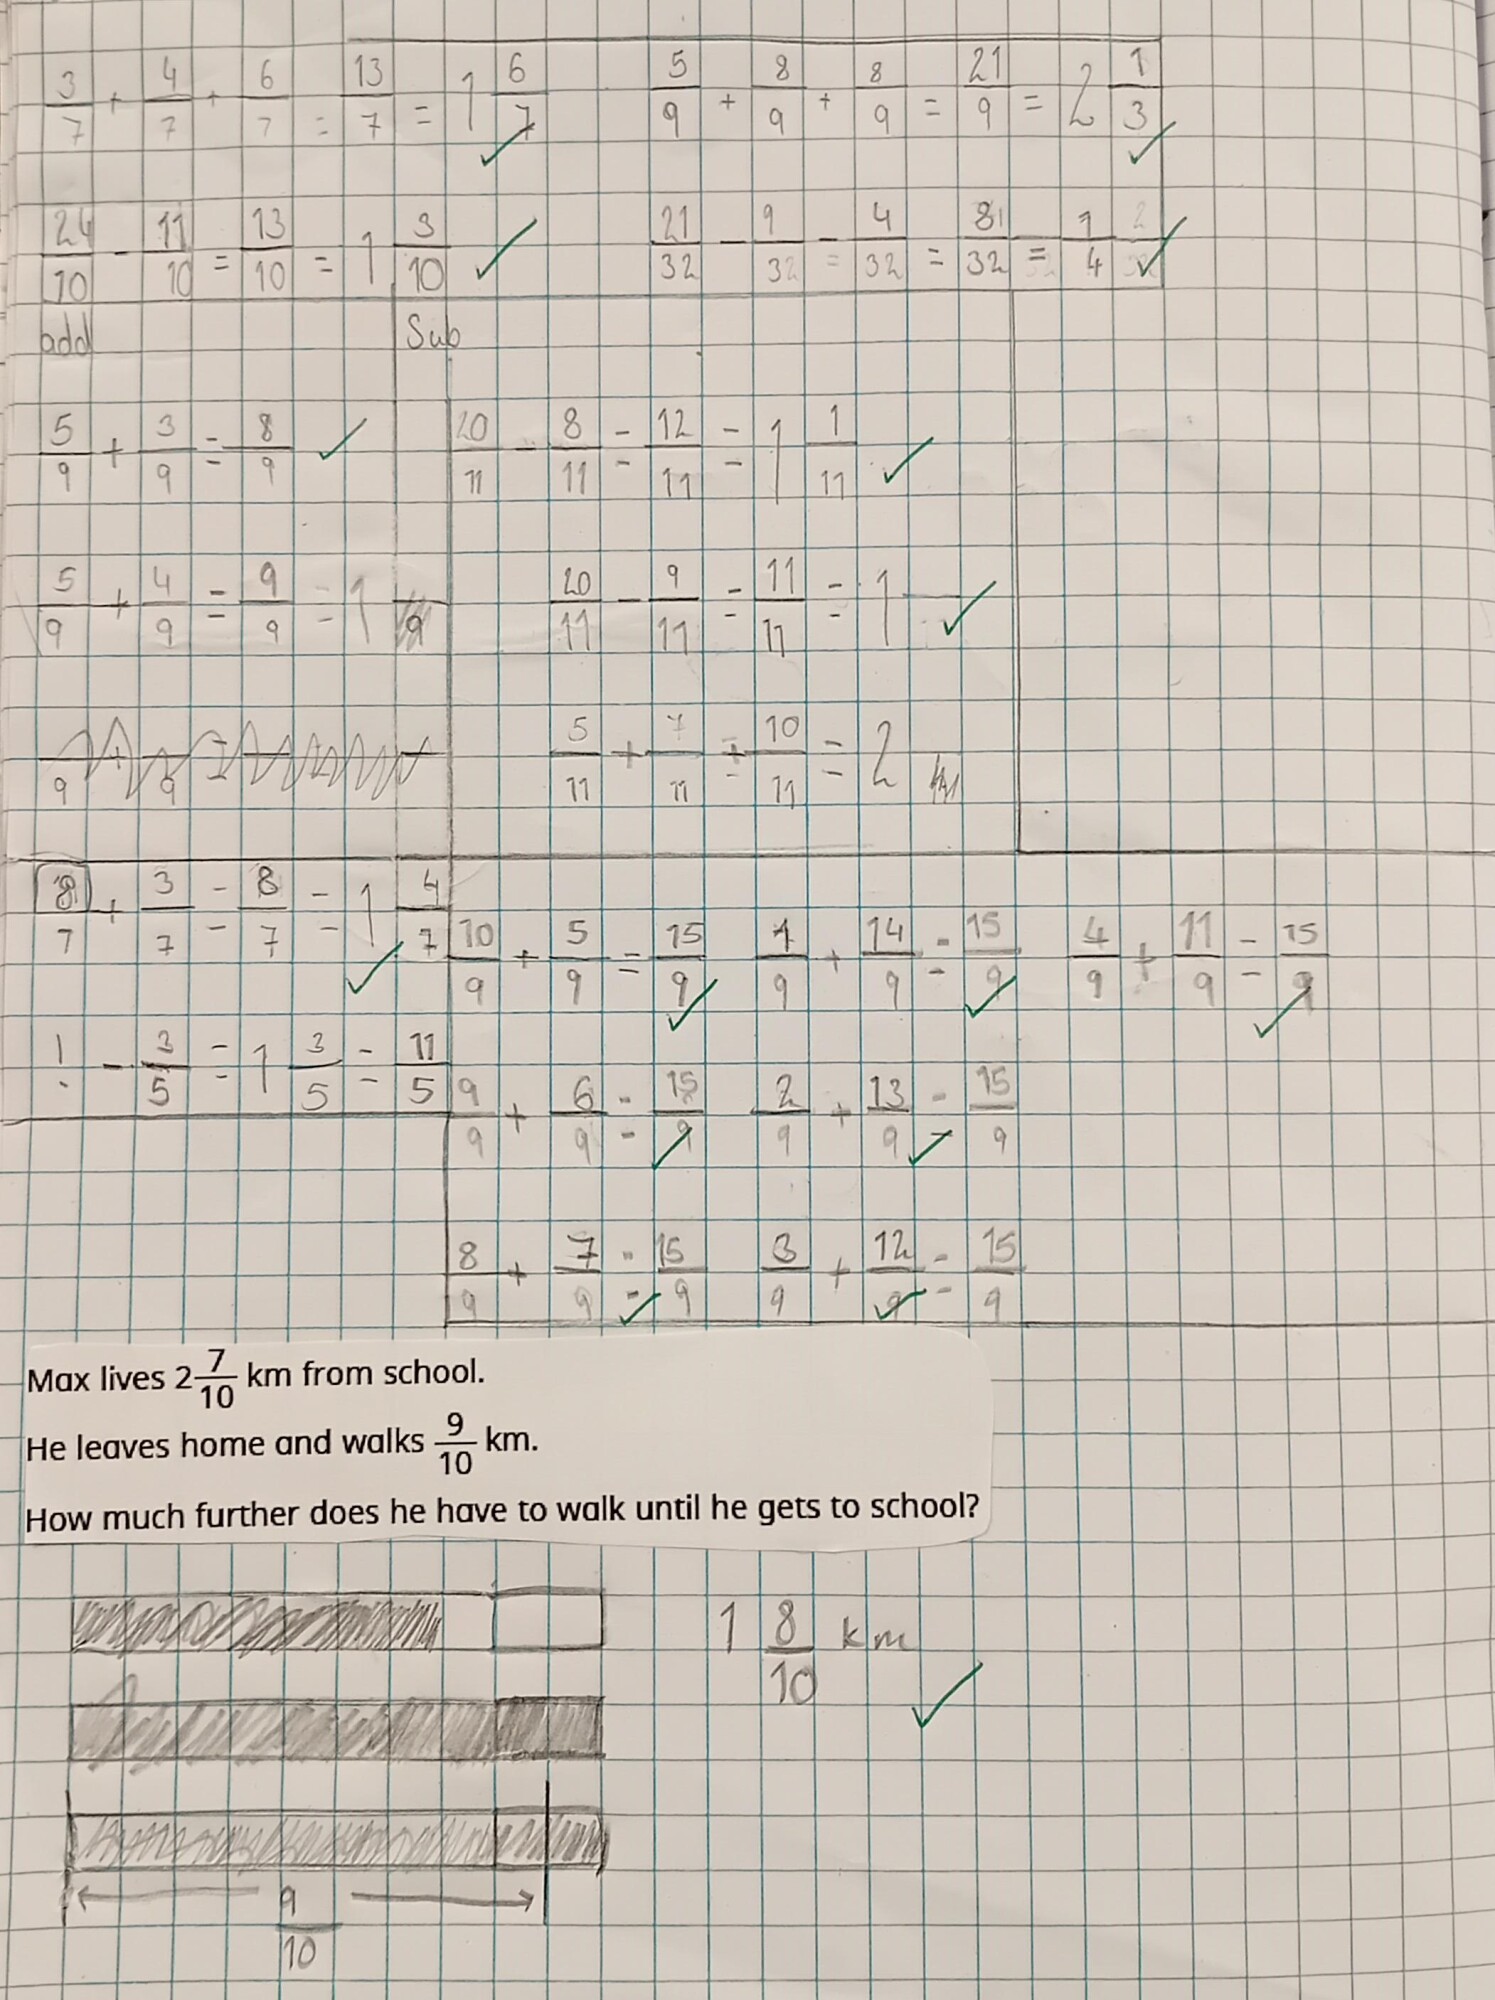 3/7 + 4/7 + 6/7 = 13/7 = 1 6/7
5/9 + 8/9 + 8/9 = 21/9 = 2 1/3
24/10 - 11/10 = 13/10 = 1 3/10
21/32 - 9/32 - 4/32 = 8/32 = 1/4
add
Sub
5/9 + 3/9 = 8/9
20/11 - 8/11 = 12/11 = 1 1/11
5/9 + 4/9 = 9/9 = 1
20/11 - 9/11 = 11/11 = 1
5/11 + 7/11 + 10/11 = 2
8/7 + 3/7 = 8/7 = 1 4/7
10/9 + 5/9 = 15/9
1/9 + 14/9 = 15/9
4/9 + 11/9 = 15/9
! - 3/5 = 1 3/5 = 11/5
9/9 + 6/9 = 15/9
2/9 + 13/9 = 15/9
8/9 + 7/9 = 15/9
3/9 + 12/9 = 15/9
Max lives 2 7/10 km from school.
He leaves home and walks 9/10 km.
How much further does he have to walk until he gets to school?
1 8/10 km
9/10